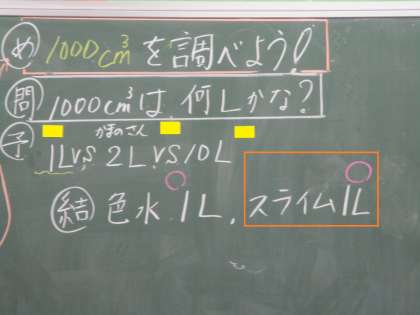 め 1000cm³を調べよう!
問 1000cm³は、何Lかな?
かまのさん
予 1L vs 2L vs 10L
結 色水 1L、スライム1L